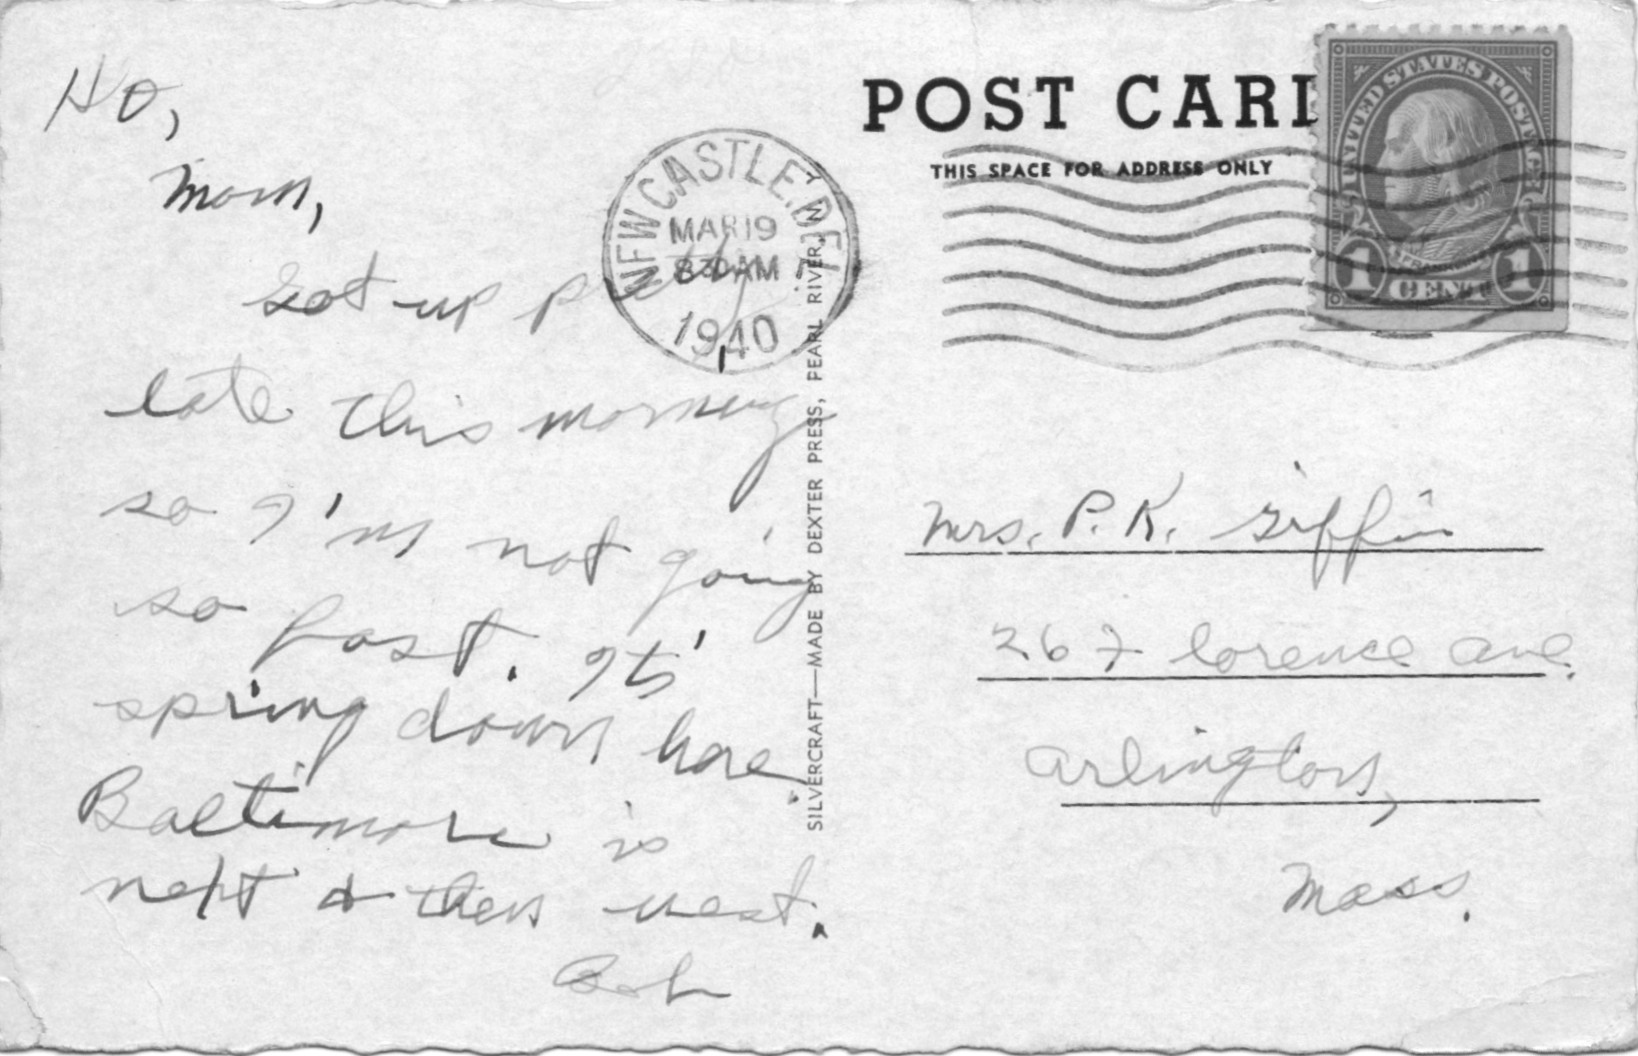 Ho,
Mom,
Got up pretty
late this morning
so I'm not going
so fast. Its'
spring down here.
Baltimore is
next & then west.
Bob
NEW CASTLE, DEL
MAR 19
830 AM
1940
SILVERCRAFT—MADE BY DEXTER PRESS, PEARL RIVER, N.Y.
POST CARD
THIS SPACE FOR ADDRESS ONLY
UNITED STATES POSTAGE
FRANKLIN
1 CENT 1
Mrs. P. K. Giffin
Lorence Ave.
Arlington,
Mass.